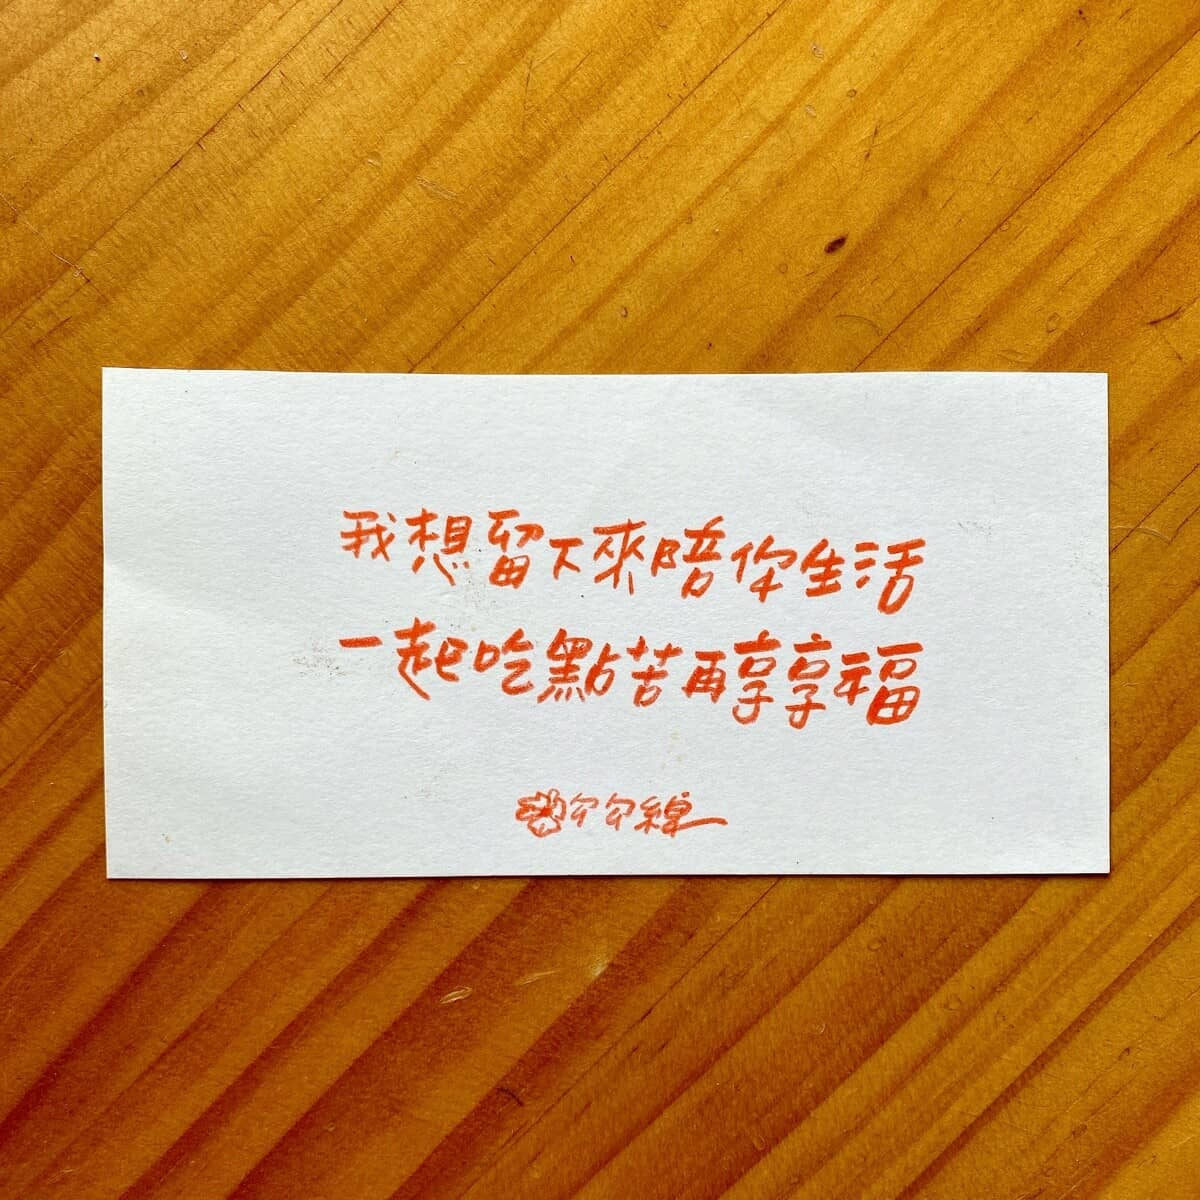 我想留下來陪你生活
一起吃點苦再享享福
勾勾線